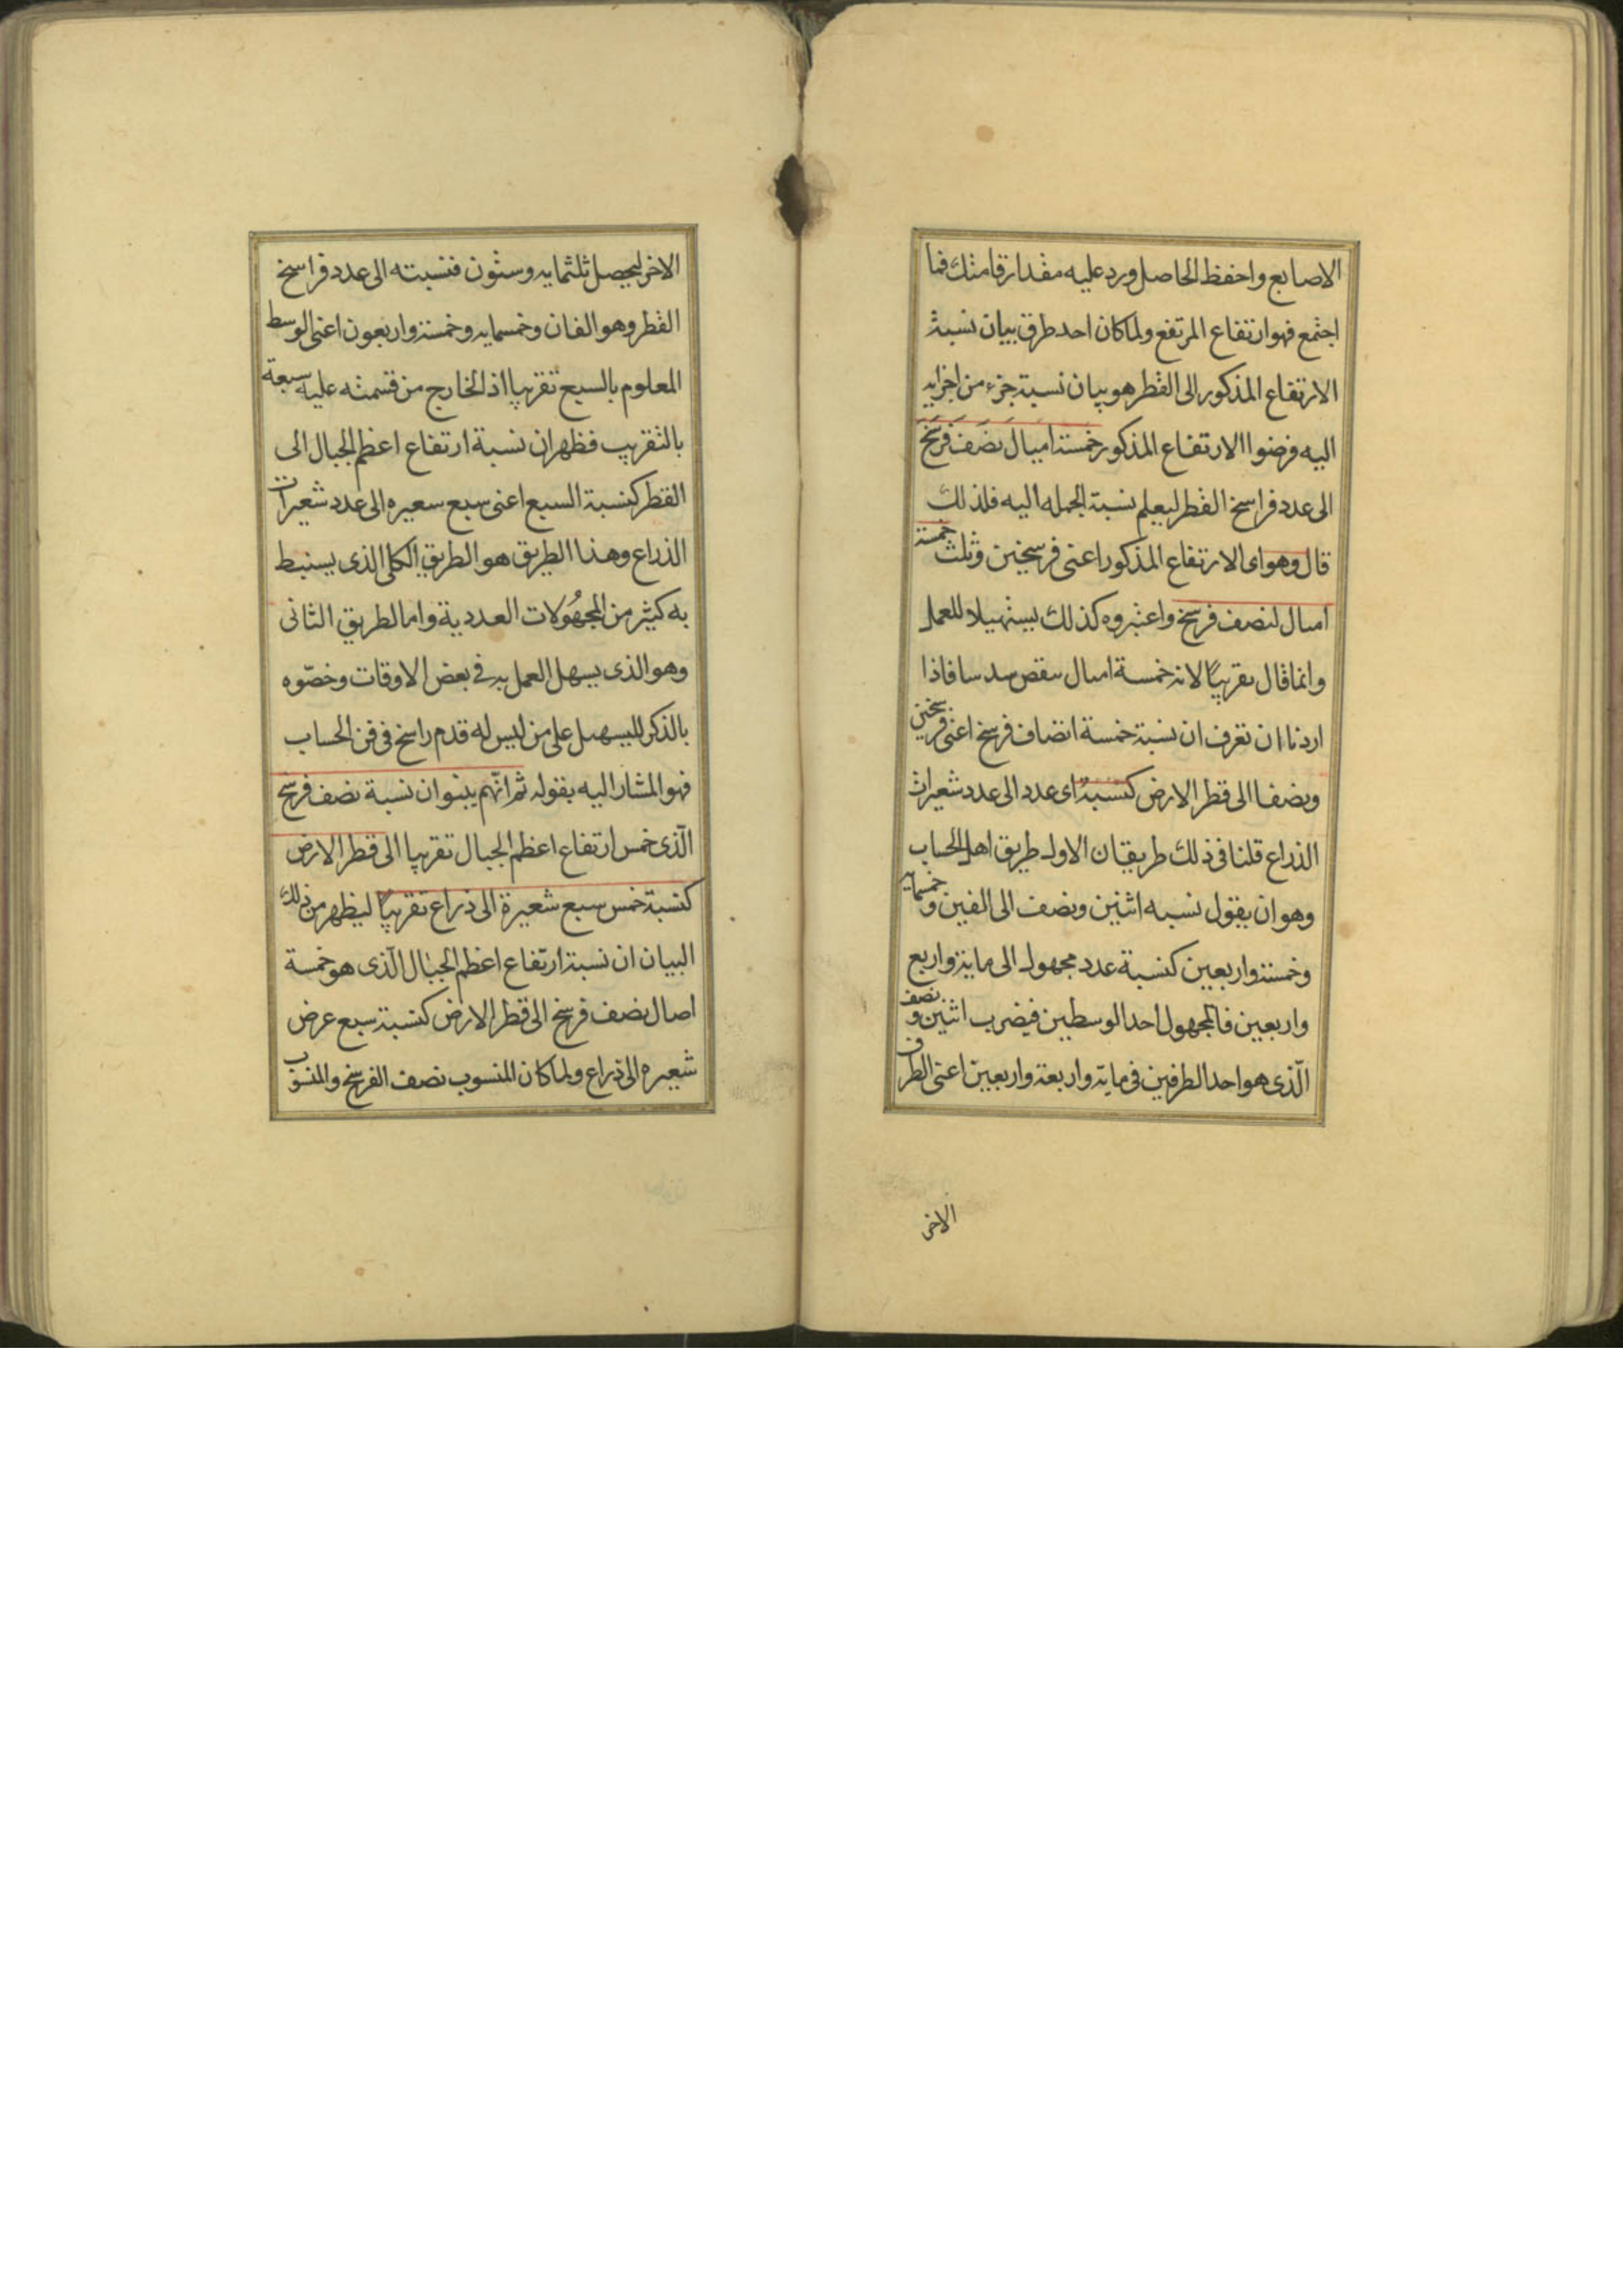 الاصابع واحفظ الحاصل ورد عليه مقدار قامتك فما
اجتمع فهو ارتفاع المرتفع ولما كان احد طرق بيان نسبة
الارتفاع المذكور الى القطر هو بيان نسبة جزء من اجزايه
اليه فرضوا الارتفاع المذكور خمسة اميال نصف فرسخ
الى عدد فراسخ القطر ليعلم نسبة الجمله اليه فلذلك
قال وهو اى الارتفاع المذكور اعنى فرسخين وثلث خمسة
امىال لنصف فرسخ واعتبروه كذلك يستهيلا للعمل
وانما قال تقريبًا لانه خمسة امىال ىنقص سدسا فاذا
اردنا ان تعرف ان نسبة خمسة انصاف فرسخ اعنى فرسخين
ونصفا الى قطر الارض كنسبة اى عدد الى عدد شعيرات
الذراع قلنا فى ذلك طريقان الاول طريق اهل الحساب
وهو ان يقول نسبه اثنين ونصف الى الفين وخمسمايه
وخمسة واربعين كنسبة عدد مجهول الى ماية واربع
واربعين فالمجهول احد الوسطين فيضرب اثنين ونصف
الّذى هو احد الطرفين فى ماية واربعة واربعين اعنى الطرف
الاخر
الاخر ليحصل ثلثمايه وستون فنسبته الى عدد فراسخ
القطر وهو الفان وخمسمايه وخمسة واربعون اعنى الوسط
المعلوم بالسبع تقريبا اذ الخارج من قسمته عليه سبعة
بالتقريب فظهر ان نسبة ارتفاع اعظم الجبال الى
القطر كنسبة السبع اعنى سبع سعيره الى عدد شعيرات
الذراع وهذا الطريق هو الطريق الكلى الذى يستنبط
به كثير من المجهُولات العددية واما الطريق الثانى
وهو الذى يسهل العمل به فى بعض الاوقات وخصّوه
بالذكر لليسهىل على من ليس له قدم راسخ فى فن الحساب
فهو المشار اليه بقوله ثم انّهم بينوا ان نسبة نصف فرسخ
الّذى خمس ارتفاع اعظم الجبال تقريبا الى قطر الارض
كنسبة خمس سبع شعيرة الى ذراع تقريبًا ليظهر من ذلك
البيان ان نسبة ارتفاع اعظم الجبال الّذى هو خمسة
امىال نصف فرسخ الى قطر الارض كنسبة سبع عرض
شعيره الى ذراع ولما كان المنسوب نصف الفرسخ والمنسوب